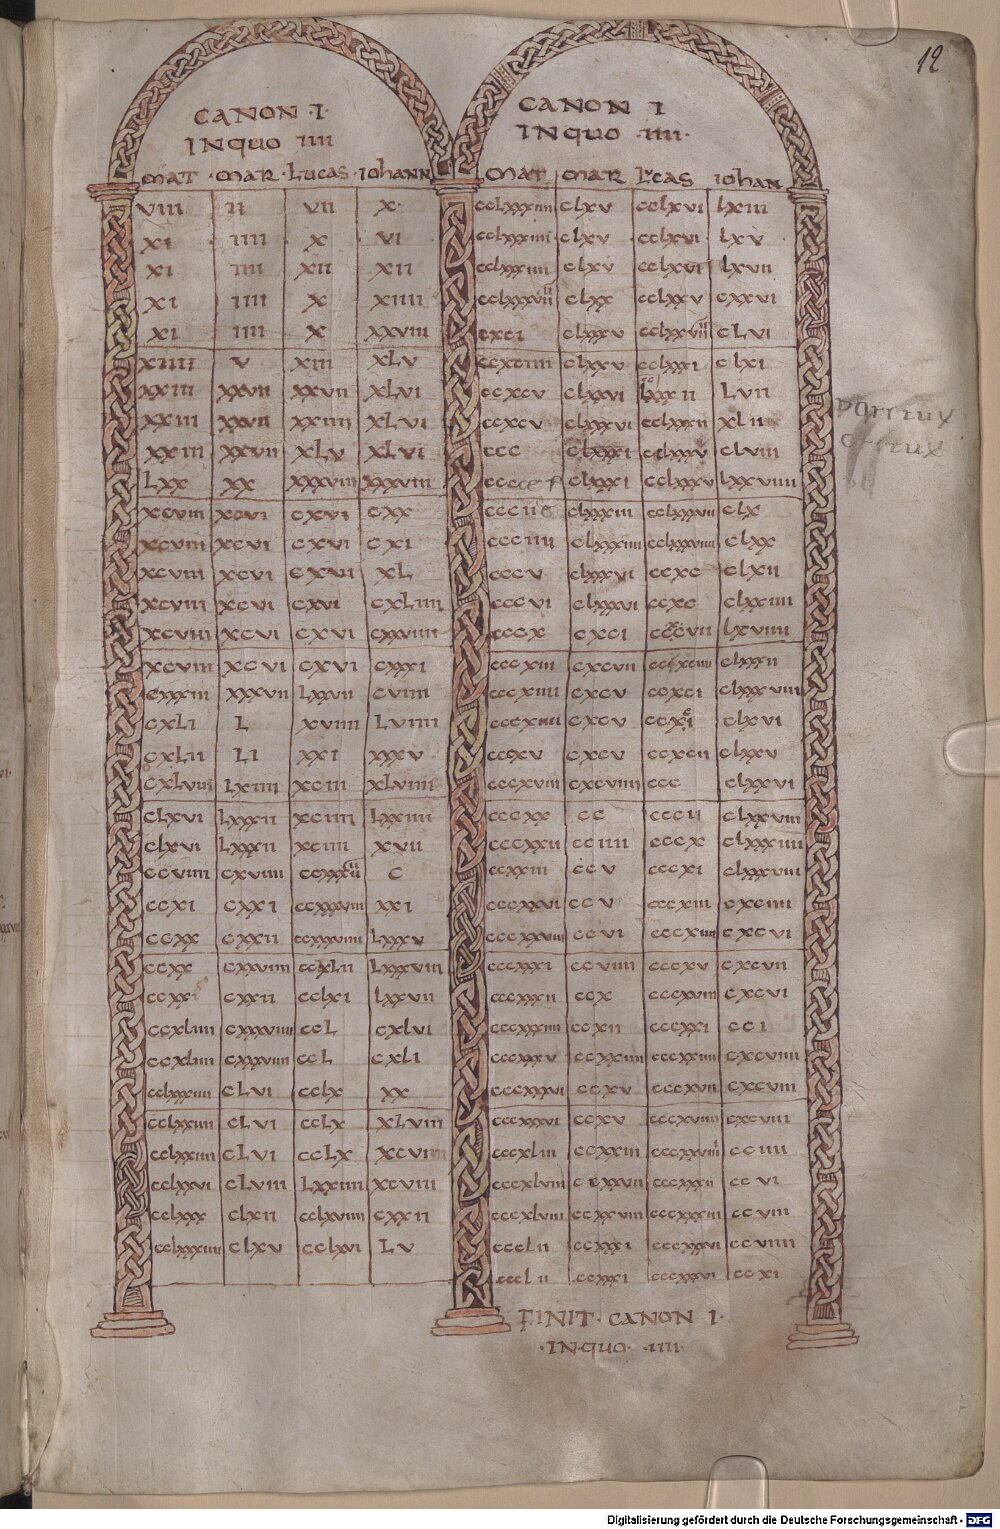 12
CANON · I ·
IN QUO IIII
MAT · MAR · LUCAS · IOHANN
VIII II VII X ·
XI IIII X VI
XI IIII XII XII
XI IIII X XIIII
XI IIII X XXVIII
XIIII V XIII XLV
XXIII XXVII XXVII XLVI
XXIII XXVII XXIIII XLVI
XXIII XXVII XLV XLVI
LXX XX XXXVIII XXXVIII
XCVIII XCVI CXVI CXX
XCVIII XCVI CXVI CXI
XCVIII XCVI CXVI XL
XCVIII XCVI CXVI CXLIIII
XCVIII XCVI CXVI CXXVIIII
XCVIII XCVI CXVI CXXXI
CXXXIII XXXVII LXXVII CVIIII
CXLI L XVIIII LVIIII
CXLII LI XXI XXXV
CXLVIII LXIIII XCIII XLVIIII
CLXVI LXXXII XCIIII LXXIIII
CLXVI LXXXII XCIIII XVII
CCVIIII CXVIIII CCXXXIIII C
CCXI CXXI CCXXXVIII XXI
CCXX CXXII CCXXXVIIII LXXXV
CCXX CXXVIIII CCXLII LXXXVIII
CCXX CXXII CCLXI LXXVII
CCXLIIII CXXXVIIII CCL CXLVI
CCXLIIII CXXXVIIII CCL CXLI
CCLXXIIII CLVI CCLX XX
CCLXXIIII CLVI CCLX XLVIII
CCLXXIIII CLVI CCLX XCVIII
CCLXXVI CLVIII LXXIIII XCVIII
CCLXXX CLXII CCLXVIIII CXXII
CCLXXXIIII CLXV CCLXVI LV
CANON I
IN QUO · IIII ·
MAT MAR LUCAS IOHAN
CCLXXXIIII CLXV CCLXVI LXIII
CCLXXXIIII CLXV CCLXVI LXV
CCLXXXIIII CLXV CCLXVI LXVII
CCLXXXVIIII CLXX CCLXXV CXXVI
CXCI CLXXV CCLXXVIIII CLVI
CCXCIIII CLXXV CCLXXXI CLXI
CCXCV CLXXVI CCLXXXII LVII
CCXCV CLXXXVI CCLXXXII XLII
CCC CLXXXI CCLXXXV CLVIII
CCC CLXXXI CCLXXXV LXXVIIII
CCCII CLXXXIII CCLXXXVII CLX
CCCIIII CLXXXIIII CCLXXXVIIII CLXX
CCCV CLXXXVI CCXC CLXII
CCCVI CLXXXVI CCXC CLXIIII
CCCX CXCI CCXCVII LXVIIII
CCCXIII CXCVII CCXCIIII CLXXII
CCCXIIII CXCV CCXCI CLXXXVIII
CCCXIIII CXCV CCXCI CLXVI
CCCXV CXCV CCXCII CLXXV
CCCXVIII CXCVIIII CCC CLXXVI
CCCXX CC CCCII CLXXVIII
CCCXXII CCIIII CCCX CLXXXIIII
CCXXIII CCV CCCXI CLXXXVIII
CCCXXVI CCV CCCXIII CXCIIII
CCCXXVIII CCVI CCCXIIII CXCVI
CCCXXXI CCVIIII CCCXV CXCVII
CCCXXXII CCX CCCXVIII CXCVI
CCCXXXIIII CCXII CCCXXI CCI
CCCXXXV CCXXIIII CCCXXIIII CXCVIIII
CCCXXXVI CCXV CCCXVII CXCVIII
CCCXXXVI CCXV CCCXVIIII CXCVIII
CCCXLIII CCXXIII CCCXXVIIII CCIIII
CCCXLVIII CCXXVII CCCXXXII CCVI
CCCXLVIII CCXXVIII CCCXXXIII CCVIII
CCCLII CCXXXI CCCXXXVI CCVIIII
CCCLII CCXXXI CCCXXXVI CCXI
FINIT · CANON I ·
· IN QUO · IIII ·
Digitalisierung gefördert durch die Deutsche Forschungsgemeinschaft - DFG